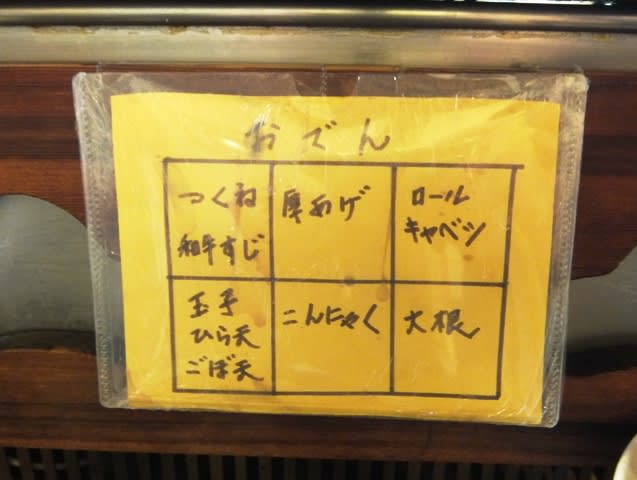 おでん
つくね
和牛すじ
厚あげ
ロール
キャベツ
玉子
ひら天
ごぼ天
こんにゃく
大根